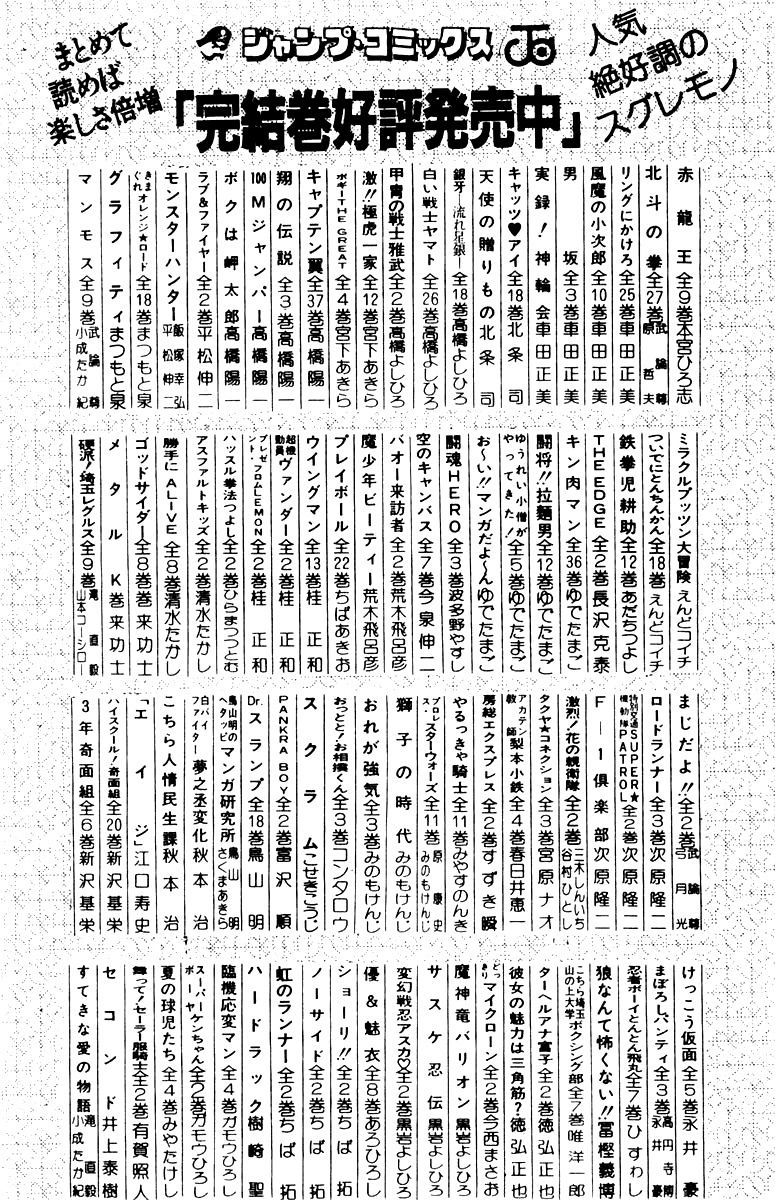 まとめて
読めば
楽しさ倍増
ジャンプ・コミックス
人気
絶好調の
スグレモノ
「完結巻好評発売中」
赤龍王全9巻本宮ひろ志
北斗の拳全27巻武論尊 原哲夫
リングにかけろ全25巻車田正美
風魔の小次郎全10巻車田正美
男坂全3巻車田正美
実録!神輪会車田正美
キャッツ♥アイ全18巻北条司
天使の贈りもの北条司
銀牙―流れ星銀―全18巻高橋よしひろ
白い戦士ヤマト全26巻高橋よしひろ
甲冑の戦士雅武全2巻高橋よしひろ
激!!極虎一家全12巻宮下あきら
ボギーTHE GREAT全4巻宮下あきら
キャプテン翼全37巻高橋陽一
翔の伝説全3巻高橋陽一
100Mジャンパー高橋陽一
ボクは岬太郎高橋陽一
ラブ&ファイヤー全2巻平松伸二
モンスターハンター飯塚幸弘 平松伸二
きまぐれオレンジ★ロード全18巻まつもと泉
グラフィティまつもと泉
マンモス全9巻武論尊 小成たか紀
ミラクルプッツン大冒険えんどコイチ
ついでにとんちんかん全18巻えんどコイチ
鉄拳児耕助全12巻あだちつよし
THE EDGE全2巻長沢克泰
キン肉マン全36巻ゆでたまご
闘将!!拉麵男全12巻ゆでたまご
ゆうれい小僧がやってきた!全5巻ゆでたまご
お〜い!!マンガだよ〜んゆでたまご
闘魂HERO全3巻波多野やすし
空のキャンバス全7巻今泉伸二
バオー来訪者全2巻荒木飛呂彦
魔少年ビーティー荒木飛呂彦
プレイボール全22巻ちばあきお
ウイングマン全13巻桂正和
超機動員ヴァンダー全2巻桂正和
プレゼント・フロムLEMON全2巻桂正和
ハッスル拳法つよし全2巻ひらまつつとむ
アスファルトキッズ全2巻清水たかし
勝手にALIVE全8巻清水たかし
ゴッドサイダー全8巻巻来功士
メタルK巻来功士
硬派!埼玉レグルス全9巻滝直毅 山本コーシロー
まじだよ!!全2巻武論尊 弓月光
ロードランナー全3巻次原隆二
特別交通機動隊SUPER★PATROL全2巻次原隆二
F―1倶楽部次原隆二
激烈!花の親衛隊全2巻三木しんいち 谷村ひとし
タクヤ★コネクション全3巻宮原ナオ
アカテン教師梨本小鉄全4巻春日井恵一
房総エクスプレス全2巻すずき瞬
やるっきゃ騎士全11巻みやすのんき
プロレス・スターウォーズ全11巻原康史 みのもけんじ
獅子の時代みのもけんじ
おれが強気全3巻みのもけんじ
おっとと!お相撲くん全3巻コンタロウ
スクラムこせきこうじ
PANKRA BOY全2巻富沢順
Dr.スランプ全18巻鳥山明
鳥山明のヘタッピマンガ研究所鳥山明 さくまあきら
白バイファイター夢之丞変化秋本治
こちら人情民生課秋本治
「エイジ」江口寿史
ハイスクール!奇面組全20巻新沢基栄
3年奇面組全6巻新沢基栄
けっこう仮面全5巻永井豪
まぼろしパンティ全3巻高円寺博 永井豪
忍者ボーイとんとん飛丸全7巻ひすわし
狼なんて怖くない!!冨樫義博
こちら埼玉山の上大学ボクシング部全7巻唯洋一郎
ターヘルアナ富子全2巻徳弘正也
彼女の魅力は三角筋?徳弘正也
どっきりマイクローン全2巻今西まさお
魔神竜バリオン黒岩よしひろ
サスケ忍伝黒岩よしひろ
変幻戦忍アスカ♡全2巻黒岩よしひろ
優&魅衣全8巻あろひろし
ショーリ!!全2巻ちば拓
ノーサイド全2巻ちば拓
虹のランナー全2巻ちば拓
ハードラック樹崎聖
臨機応変マン全4巻ガモウひろし
スーパーボーヤケンちゃん全2巻ガモウひろし
夏の球児たち全4巻みやたけし
舞って!セーラー服騎士全2巻有賀照人
セコンド井上泰樹
すてきな愛の物語滝直毅 小成たか紀